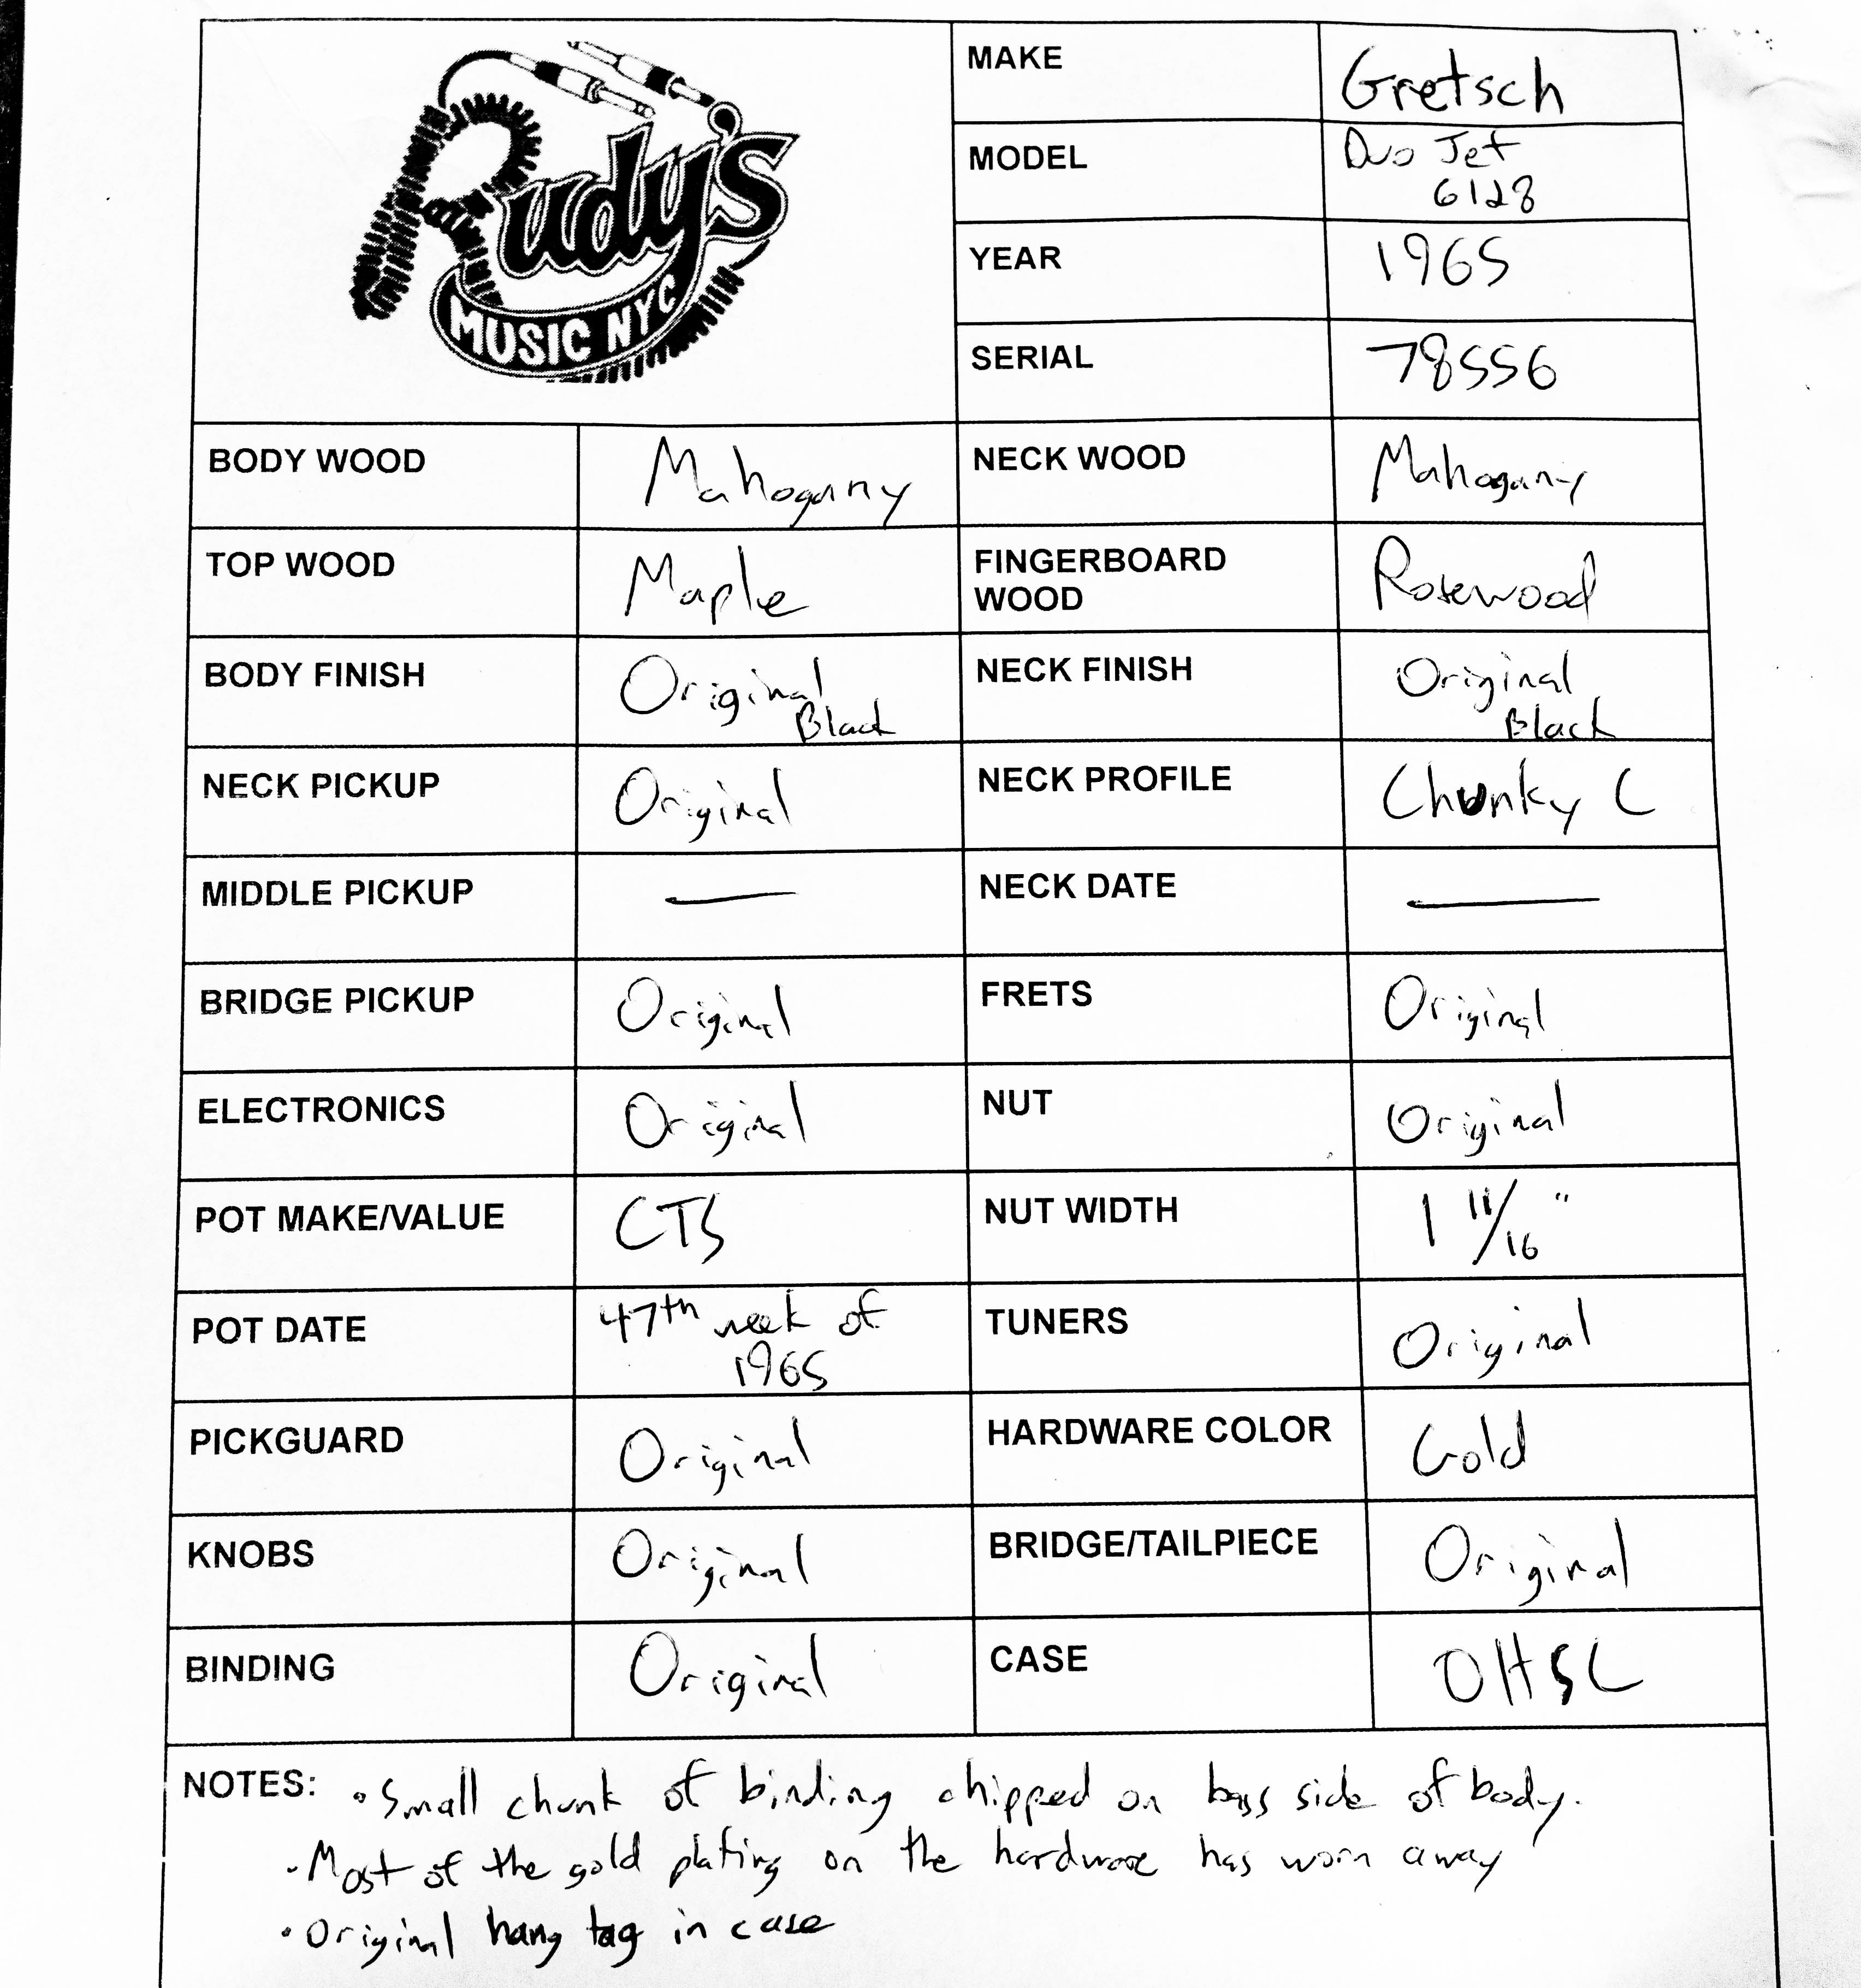 Rudy's
MUSIC NYC
MAKE
Gretsch
MODEL
Duo Jet
6128
YEAR
1965
SERIAL
78556
BODY WOOD
Mahogany
NECK WOOD
Mahogany
TOP WOOD
Maple
FINGERBOARD
WOOD
Rosewood
BODY FINISH
Original
Black
NECK FINISH
Original
Black
NECK PICKUP
Original
NECK PROFILE
Chunky C
MIDDLE PICKUP
—
NECK DATE
—
BRIDGE PICKUP
Original
FRETS
Original
ELECTRONICS
Original
NUT
Original
POT MAKE/VALUE
CTS
NUT WIDTH
1 11/16 "
POT DATE
47th week of
1965
TUNERS
Original
PICKGUARD
Original
HARDWARE COLOR
Gold
KNOBS
Original
BRIDGE/TAILPIECE
Original
BINDING
Original
CASE
OHSC
NOTES: • Small chunk of binding chipped on bass side of body.
• Most of the gold plating on the hardware has worn away
• Original hang tag in case